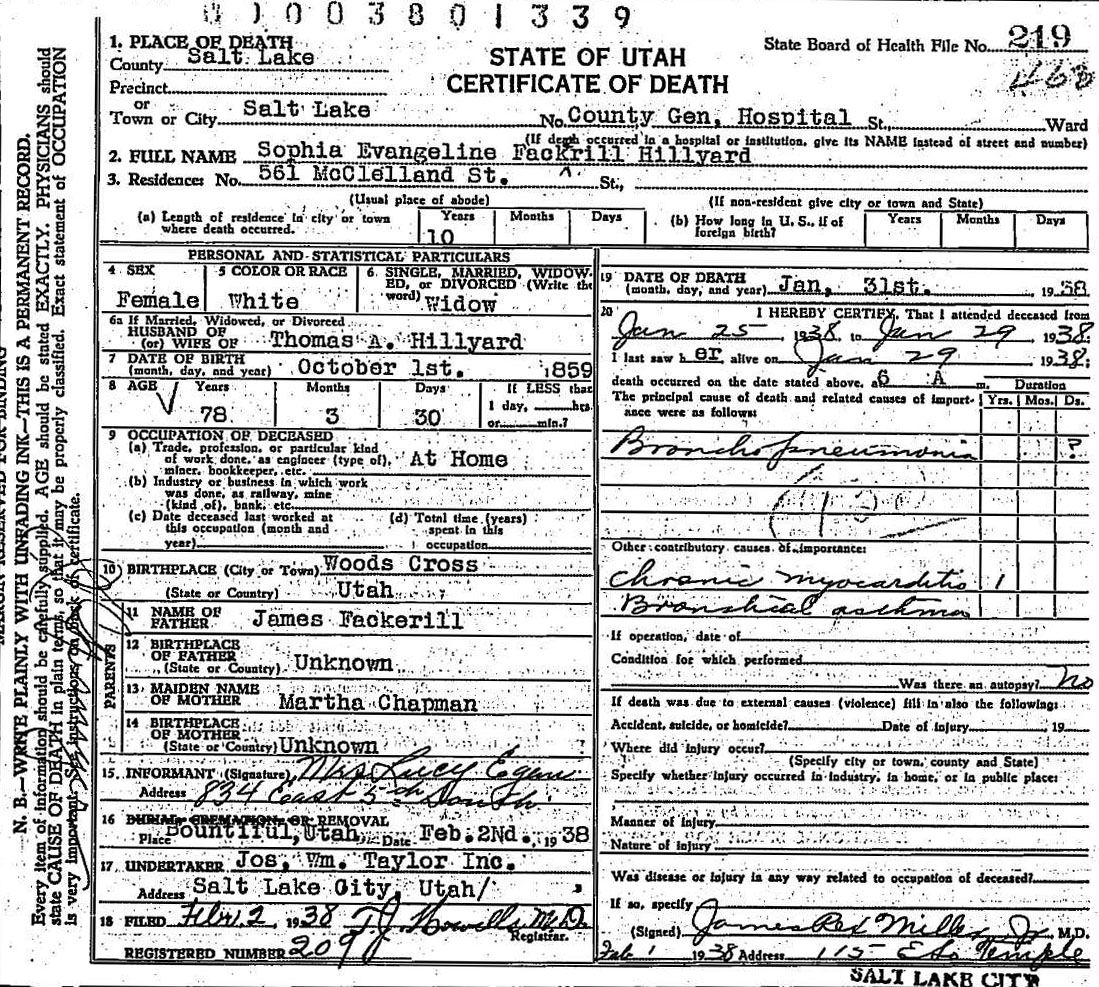 01003801339
1. PLACE OF DEATH
County Salt Lake
STATE OF UTAH
CERTIFICATE OF DEATH
State Board of Health File No. 219
468
Precinct
or
Town or City Salt Lake No. County Gen, Hospital St., Ward
(If death occurred in a hospital or institution, give its NAME instead of street and number)
2. FULL NAME Sophia Evangeline Fackrill Hillyard
3. Residence: No. 561 McClelland St. St.,
(Usual place of abode) (If non-resident give city or town and State)
(a) Length of residence in city or town where death occurred. Years 10 Months Days
(b) How long in U. S., if of foreign birth? Years Months Days
PERSONAL AND STATISTICAL PARTICULARS
4 SEX Female
5 COLOR OR RACE White
6. SINGLE, MARRIED, WIDOWED, or DIVORCED (Write the word) Widow
6a If Married, Widowed, or Divorced
HUSBAND OF
(or) WIFE OF Thomas A. Hillyard
7 DATE OF BIRTH
(month, day, and year) October 1st. 1859
8 AGE Years 78 Months 3 Days 30 If LESS than 1 day, hrs. or min.?
9 OCCUPATION OF DECEASED
(a) Trade, profession, or particular kind
of work done, as engineer (type of), At Home
miner, bookkeeper, etc.
(b) Industry or business in which work
was done, as railway, mine
(kind of), bank, etc.
(c) Date deceased last worked at
this occupation (month and
year)
(d) Total time (years)
spent in this
occupation
10 BIRTHPLACE (City or Town) Woods Cross
(State or Country) Utah
PARENTS
11 NAME OF
FATHER James Fackerill
12 BIRTHPLACE
OF FATHER
(State or Country) Unknown
13 MAIDEN NAME
OF MOTHER Martha Chapman
14 BIRTHPLACE
OF MOTHER
(State or Country) Unknown
15. INFORMANT (Signature) Mrs Lucy Egan
Address 834 East 5th South
16 BURIAL, CREMATION, OR REMOVAL
Place Bountiful, Utah, Date Feb. 2Nd., 1938
17 UNDERTAKER Jos, Wm. Taylor Inc.
Address Salt Lake City, Utah/
18 FILED Febr. 2, 1938 T.J. Howells M.D.
Registrar.
REGISTERED NUMBER 209
19 DATE OF DEATH
(month, day, and year) Jan, 31st. , 1938
20 I HEREBY CERTIFY, That I attended deceased from
Jan 25 1938, to Jan 29 1938
I last saw her alive on Jan 29 1938;
death occurred on the date stated above, at 6 A m. Duration
The principal cause of death and related causes of importance were as follows: Yrs. Mos. Ds.
Bronchopneumonia ?
Other contributory causes of importance:
Chronic myocarditis 1
Bronchial asthma
If operation, date of
Condition for which performed
Was there an autopsy? No
If death was due to external causes (violence) fill in also the following:
Accident, suicide, or homicide? Date of injury 19
Where did injury occur?
(Specify city or town, county and State)
Specify whether injury occurred in industry, in home, or in public place:
Manner of injury
Nature of injury
Was disease or injury in any way related to occupation of deceased?
If so, specify
(Signed) James Rex Miller Jr, M.D.
Feb 1 1938 Address 115 E So Temple
SALT LAKE CITY
MARGIN RESERVED FOR BINDING
N. B.—WRITE PLAINLY WITH UNFADING INK—THIS IS A PERMANENT RECORD.
Every item of information should be carefully supplied. AGE should be stated EXACTLY. PHYSICIANS should
state CAUSE OF DEATH in plain terms, so that it may be properly classified. Exact statement of OCCUPATION
is very important. See instructions on back of certificate.